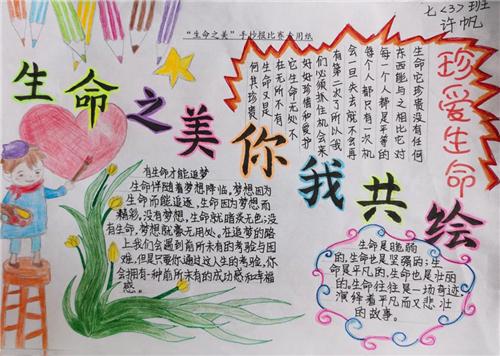 七<3>班
许帆
“生命之美”手抄报比赛专用纸
生命之美你我共绘
珍爱生命
生命它珍贵没有任何
东西能与之相比它对
每一个人都是平等的
每个人都只有一次机
会一旦失去就不会再
有第二次了所以我
们必须抓住机会来
好好珍惜和爱护
它生命无处不
在无所不有
生命又是
何其珍贵
有生命才能追梦
生命伴随着梦想降临,梦想因为
生命而能追逐,生命因为梦想而
精彩,没有梦想,生命就暗淡无色;没
有生命,梦想就毫无用处,在追梦的路
上我们会遇到前所未有的考验与困
难,但是只要你通过这人生的考验,你会
拥有一种前所未有的成功感和幸福
感。
生命是脆弱
的,生命也是坚强的;生
命是平凡的,生命也是壮丽
的,生命往往是一场奇迹
演绎着平凡而又悲壮
的故事。